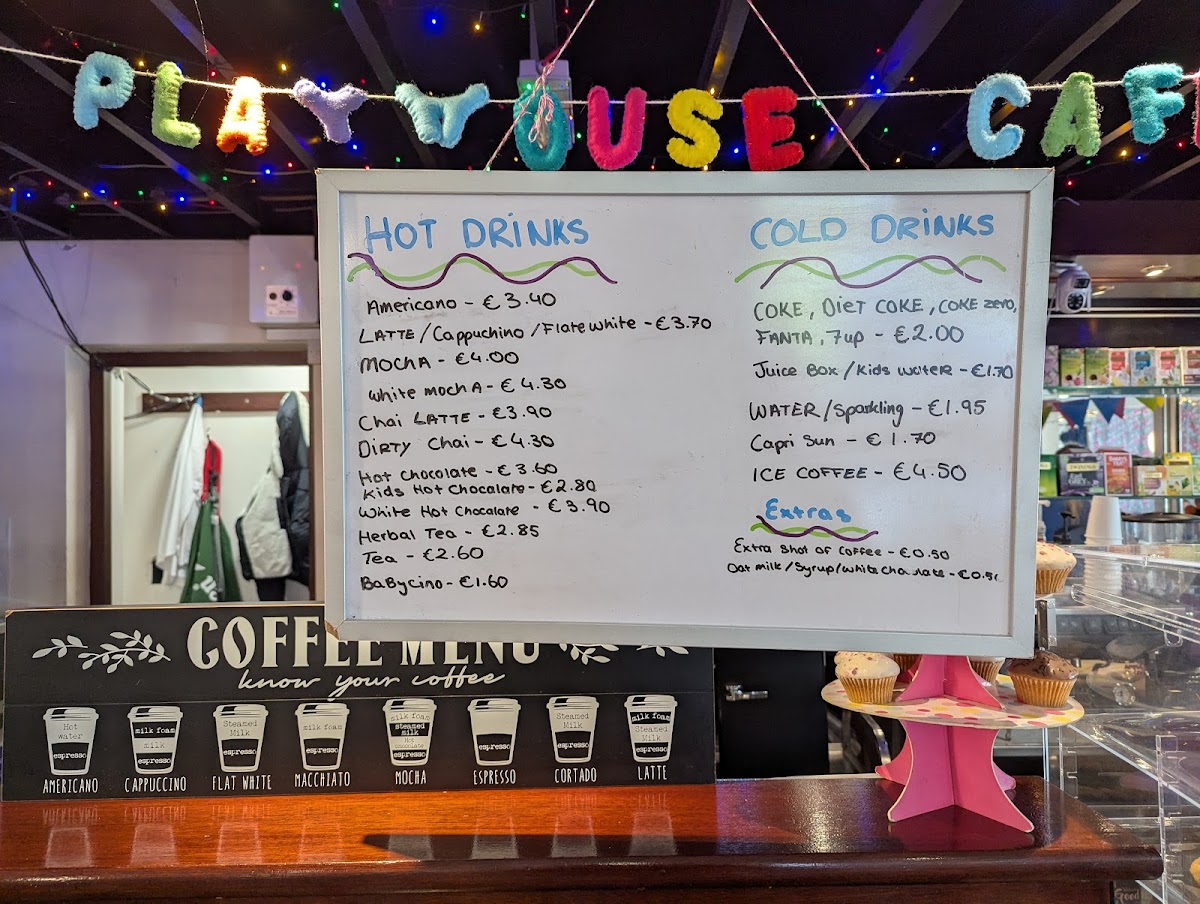 PLAYHOUSE CAFE
HOT DRINKS
Americano - €3.40
LATTE/Cappuchino/Flatewhite - €3.70
MOCHA - €4.00
White mocHA - €4.30
Chai LATTE - €3.90
DIRTY Chai - €4.30
Hot Chocolate - €3.60
Kids Hot Chocolate - €2.80
White Hot Chocolate - €3.90
Herbal Tea - €2.85
Tea - €2.60
BaBycino - €1.60
COLD DRINKS
COKE, Diet COKE, COKE zero,
FANTA, 7up - €2.00
Juice Box/Kids water - €1.70
WATER/Sparkling - €1.95
Capri Sun - €1.70
ICE COFFEE - €4.50
Extras
Extra Shot of coffee - €0.50
Oat milk/Syrup/White
COFFEE MENU
know your coffee
Hot water
espresso
AMERICANO
milk foam
milk
espresso
CAPPUCCINO
Steamed Milk
espresso
FLAT WHITE
milk foam
espresso
MACCHIATO
milk foam
steamed milk
Hot chocolate
espresso
MOCHA
espresso
ESPRESSO
Steamed Milk
espresso
CORTADO
milk foam
Steamed Milk
espresso
LATTE